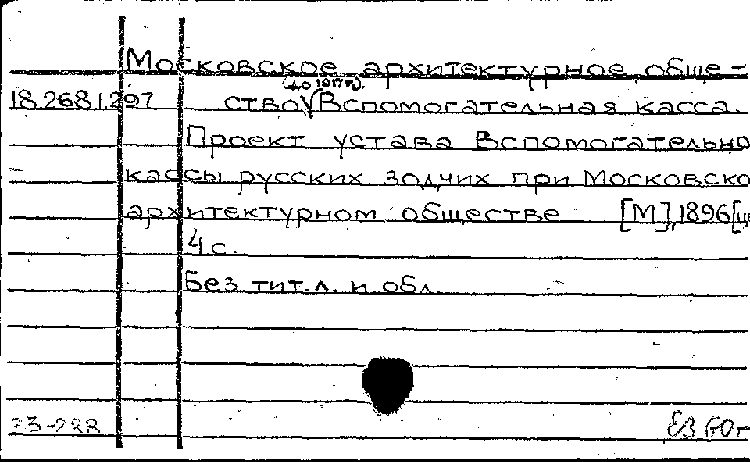 Московское архитектурное обще-
(до 1917 г.)
18.268.1.297 ство √ Вспомогательная касса.
Проект устава Вспомогательно
кассы русских зодчих при Московско
архитектурном обществе [М], 1896
4 с.
Без тит. л. и обл.
73-288